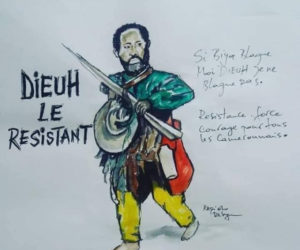 DIEUH
LE
RESISTANT
Si Biya Blague
Moi DIEUH Je ne
Blague pas.
Resistance, force
courage pour tous
les Camerounais.